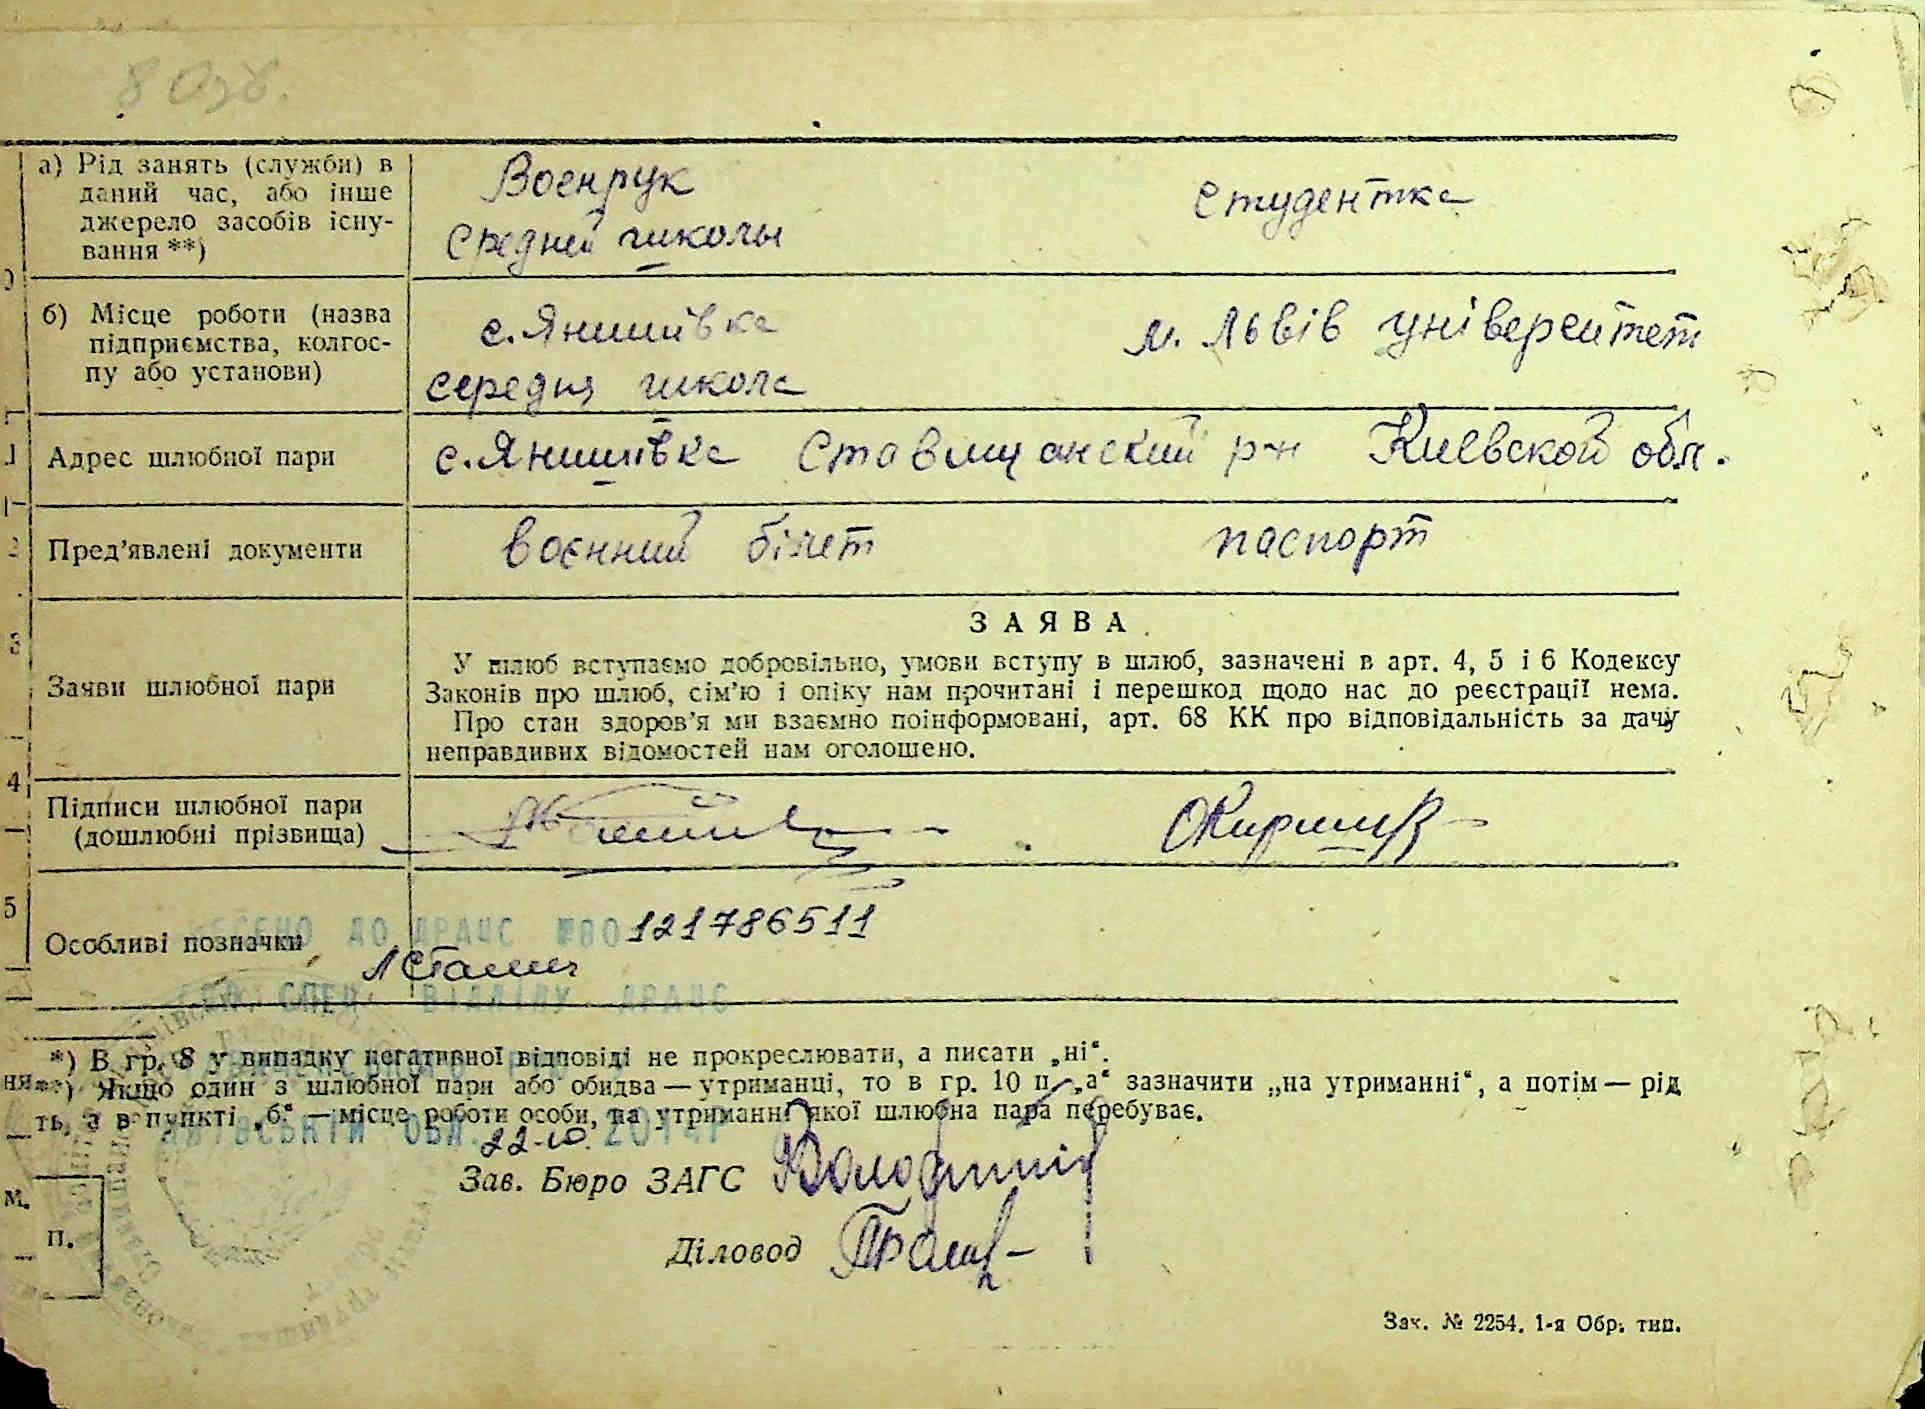 а) Рід занять (служби) в
даний час, або інше
джерело засобів існу-
вання **)
Воєнрук
Средней школы
студентка
б) Місце роботи (назва
підприємства, колгос-
пу або установи)
с. Янишівка
середня школа
м. Львів університет
Адрес шлюбної пари
с. Янишівка Ставищанский р-н Киевской обл.
Пред’явлені документи
воєнний білет
паспорт
Заяви шлюбної пари
ЗАЯВА
У шлюб вступаємо добровільно, умови вступу в шлюб, зазначені в арт. 4, 5 і 6 Кодексу
Законів про шлюб, сім’ю і опіку нам прочитані і перешкод щодо нас до реєстрації нема.
Про стан здоров’я ми взаємно поінформовані, арт. 68 КК про відповідальність за дачу
неправдивих відомостей нам оголошено.
Підписи шлюбної пари
(дошлюбні прізвища)
Особливі позначки
ДО ДРАЦС №00121786511
СПЕЦ. ВІДДІЛУ ДРАЦС
*) В гр. 8 у випадку негативної відповіді не прокреслювати, а писати „ні“.
**) Якщо один з шлюбної пари або обидва — утриманці, то в гр. 10 п. „а“ зазначити „на утриманні“, а потім — рід
ть, а в пункті „б“ — місце роботи особи, на утриманні якої шлюбна пара перебуває.
22.10. 2014р
Зав. Бюро ЗАГС
Діловод
М.
П.
Зак. № 2254. 1-я Обр. тип.